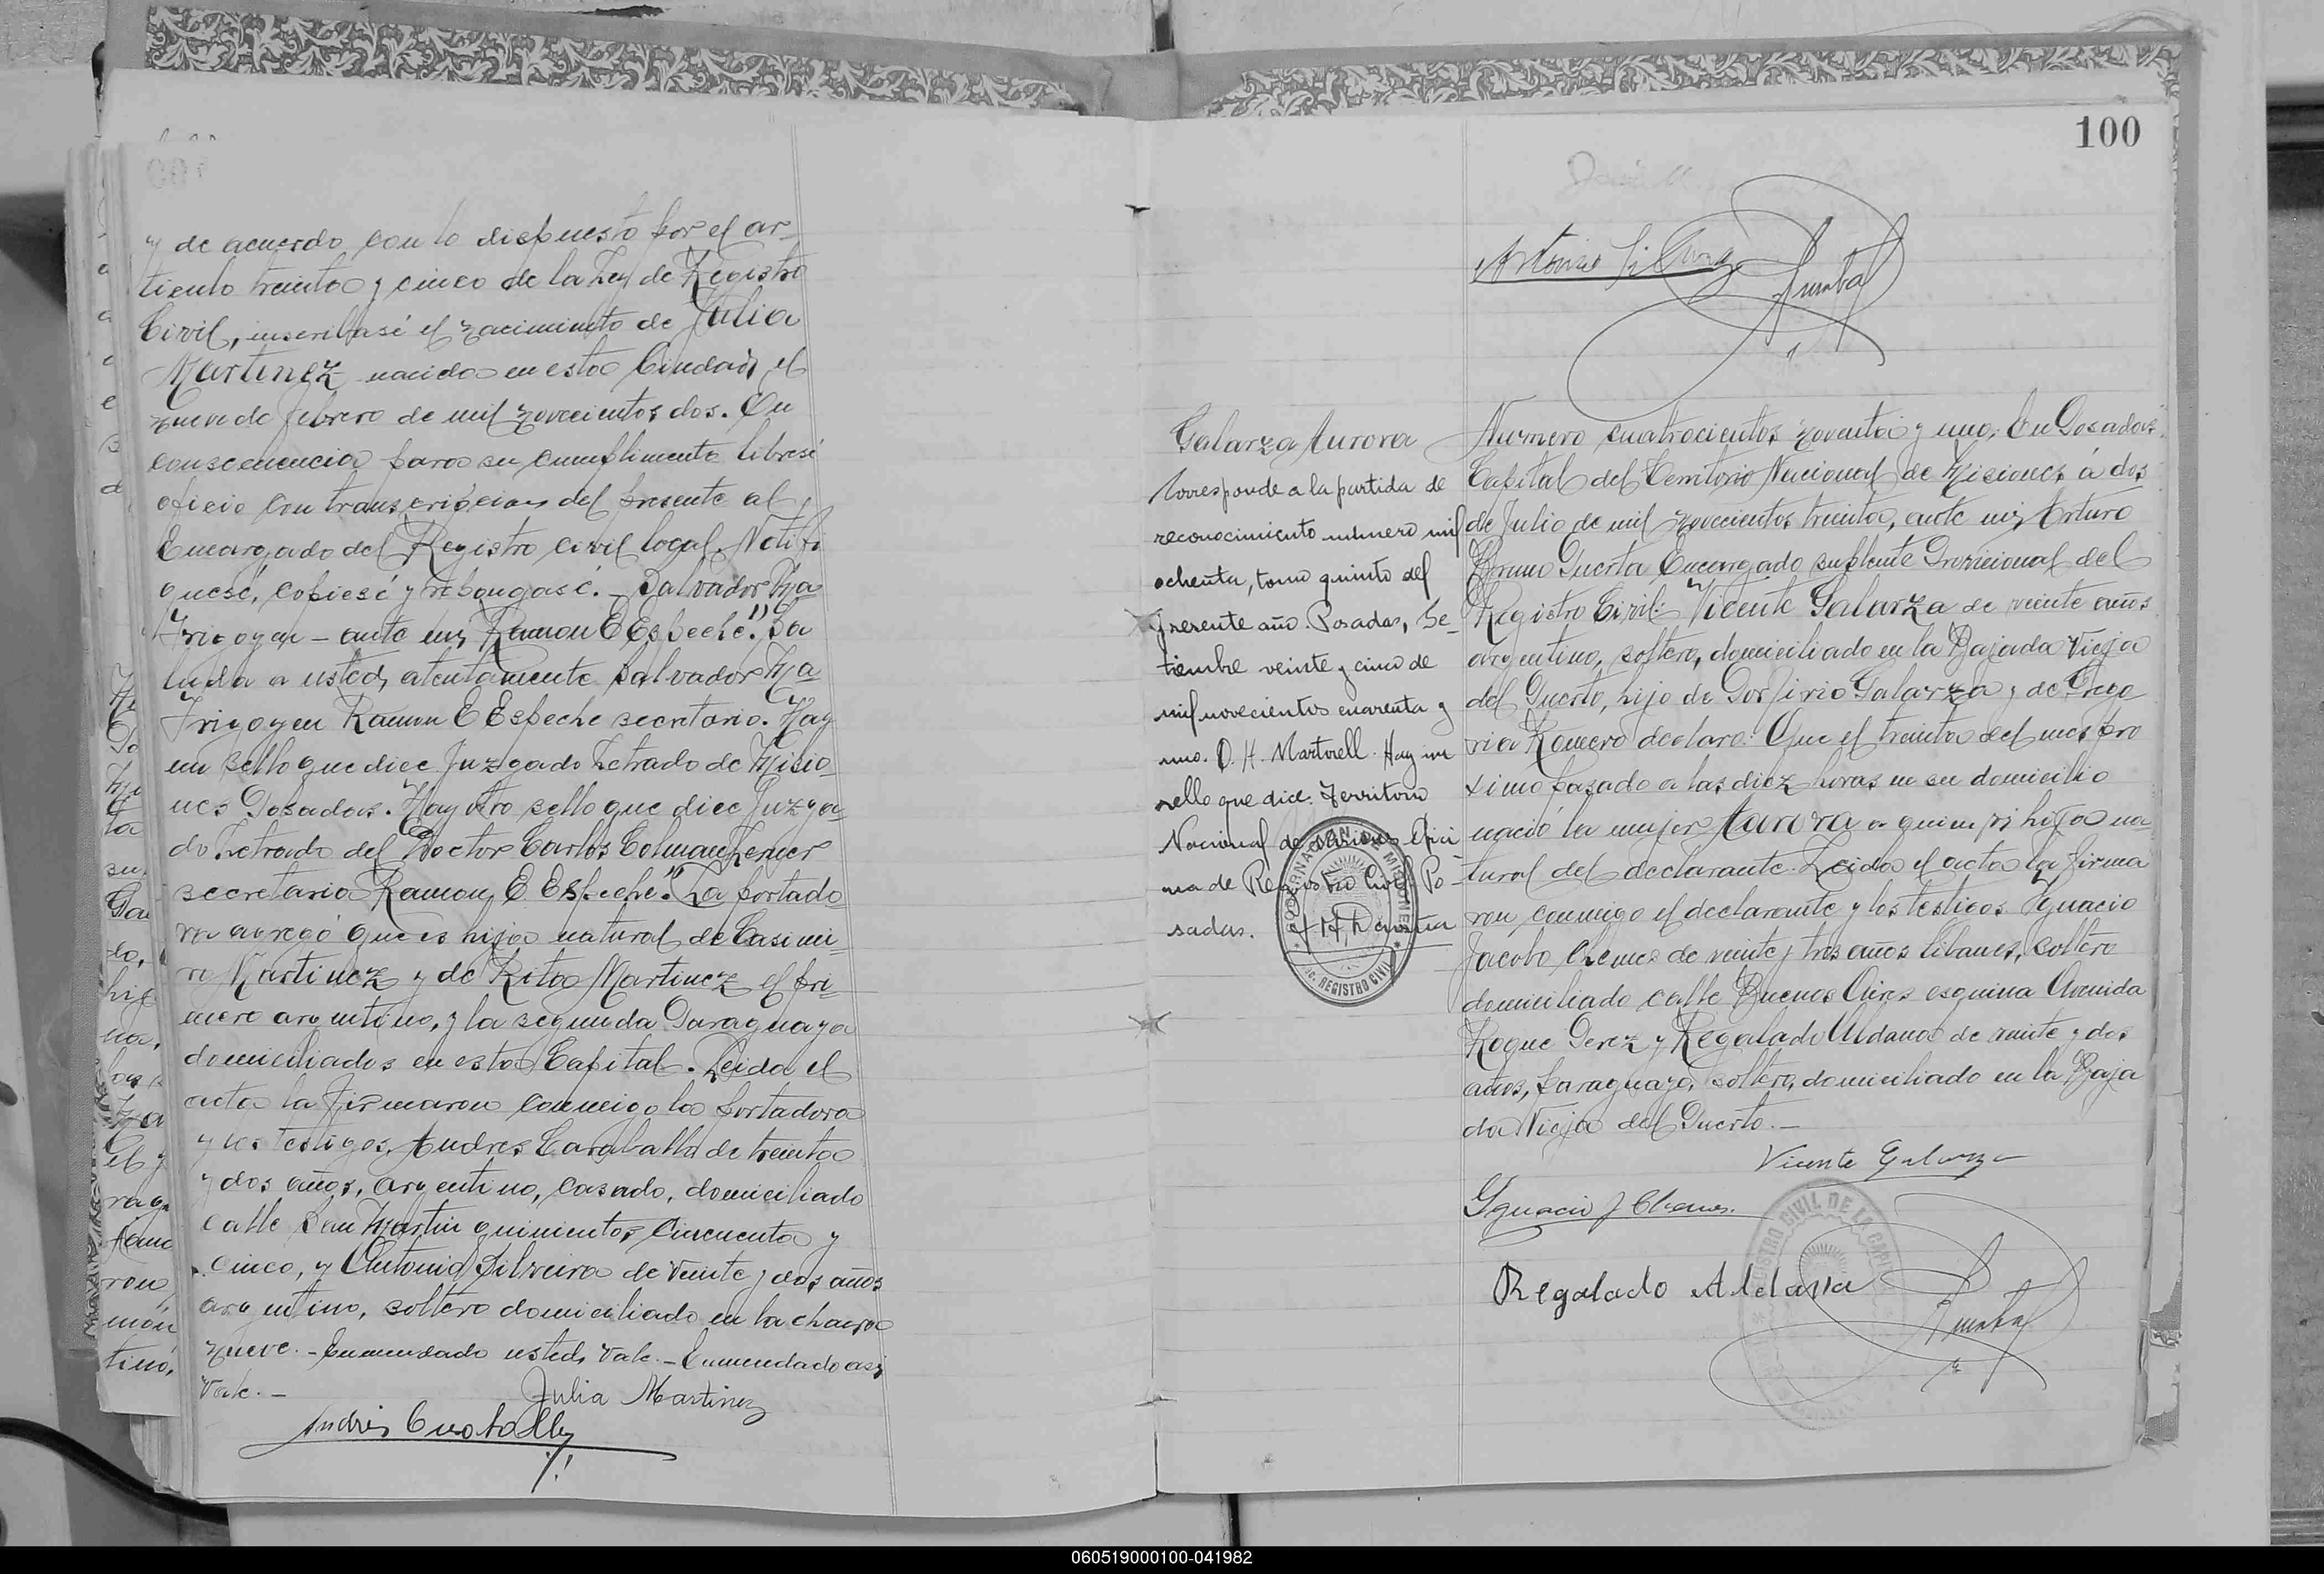 y de acuerdo con lo dispuesto por el ar-
ticulo treinta y cinco de la Ley de Registro
Civil, inscribasé el nacimineto de Julia
Martinez nacida en esta Ciudad, el
nueve de febrero de mil novecientos dos. En
consecuencia para su cumplimento libresé
oficio con transcripcion del presente al
Encargado del Registro civil local. Notifi
quesé, copiesé y repongasé. - Salvador Ma
Irigoyen - ante mi, Ramon E Espeche." Sa
luda a usted, atentamente Salvador Ma
Irigoyen Ramon E Espeche secretario. Hay
un sello que dice Juzgado Letrado de Misio_
nes Posadas. Hay otro sello que dice Juzga_
do Letrado del Doctor Carlos Colman Lerner
secretario Ramon E Espeche." La portado_
ra agregó que es hija natural de Casimi-
ro Martinez y de Rita Martinez el pri-
mero argentino, y la segunda Paraguaya
domiciliados en esta Capital. Leida el
acta la firmaron conmigo la portadora
y los testigos, Andres Caraballo de treinta
y dos años, argentino, casado, domiciliado
calle San Martin quinientos cincuenta y
cinco, y Antonio Silveira de veinte y dos años
argentino, soltero domiciliado en la chacra
nueve. - Enmendado usted, vale. - Enmendado asi,
vale. -
Julia Martinez
100
Antonio
Galarza Aurora
Corresponde a la partida de
reconocimiento número mil
ochenta, tomo quinto del
presente año. Posadas, Se-
tiembre veinte y cinco de
mil novecientos cuarenta y
uno. O. H. Martorell. Hay un
sello que dice: Territorio
Nacional de Misiones Ofici-
na de Registro Civil Po-
sadas.
GOBERNACION DE MISIONES
REGISTRO CIVIL
Numero cuatrocientos noventa y uno. En Posadas,
Capital del Territorio Nacional de Misiones á dos
de Julio de mil novecientos treinta, ante mi, Arturo
Bruno Puerta Encargado suplente Provicional del
Registro Civil: Vicente Galarza de veinte años
argentino, soltero, domiciliado en la Bajada Vieja
del Puerto, hijo de Porfirio Galarza y de Grego
ria Romero declaro: Que el treinta del mes pro
ximo pasado a las diez horas en su domicilio
nació la mujer Aurora a quien es hija na
tural del declarante. Leida el acta la firma
ron conmigo el declarante y los testigos Ignacio
Jacobo Chemes de veinte y tres años libanes, soltero
domiciliado calle Buenos Aires esquina Avenida
Roque Perez y Regalado Aldana de veinte y dos
años, paraguayo, soltero, domiciliado en la Baja
da Vieja del Puerto. -
Vicente Galarza
Ignacio J Chemes.
REGISTRO CIVIL DE LA CAPITAL
Regalado Aldana
060519000100-041982